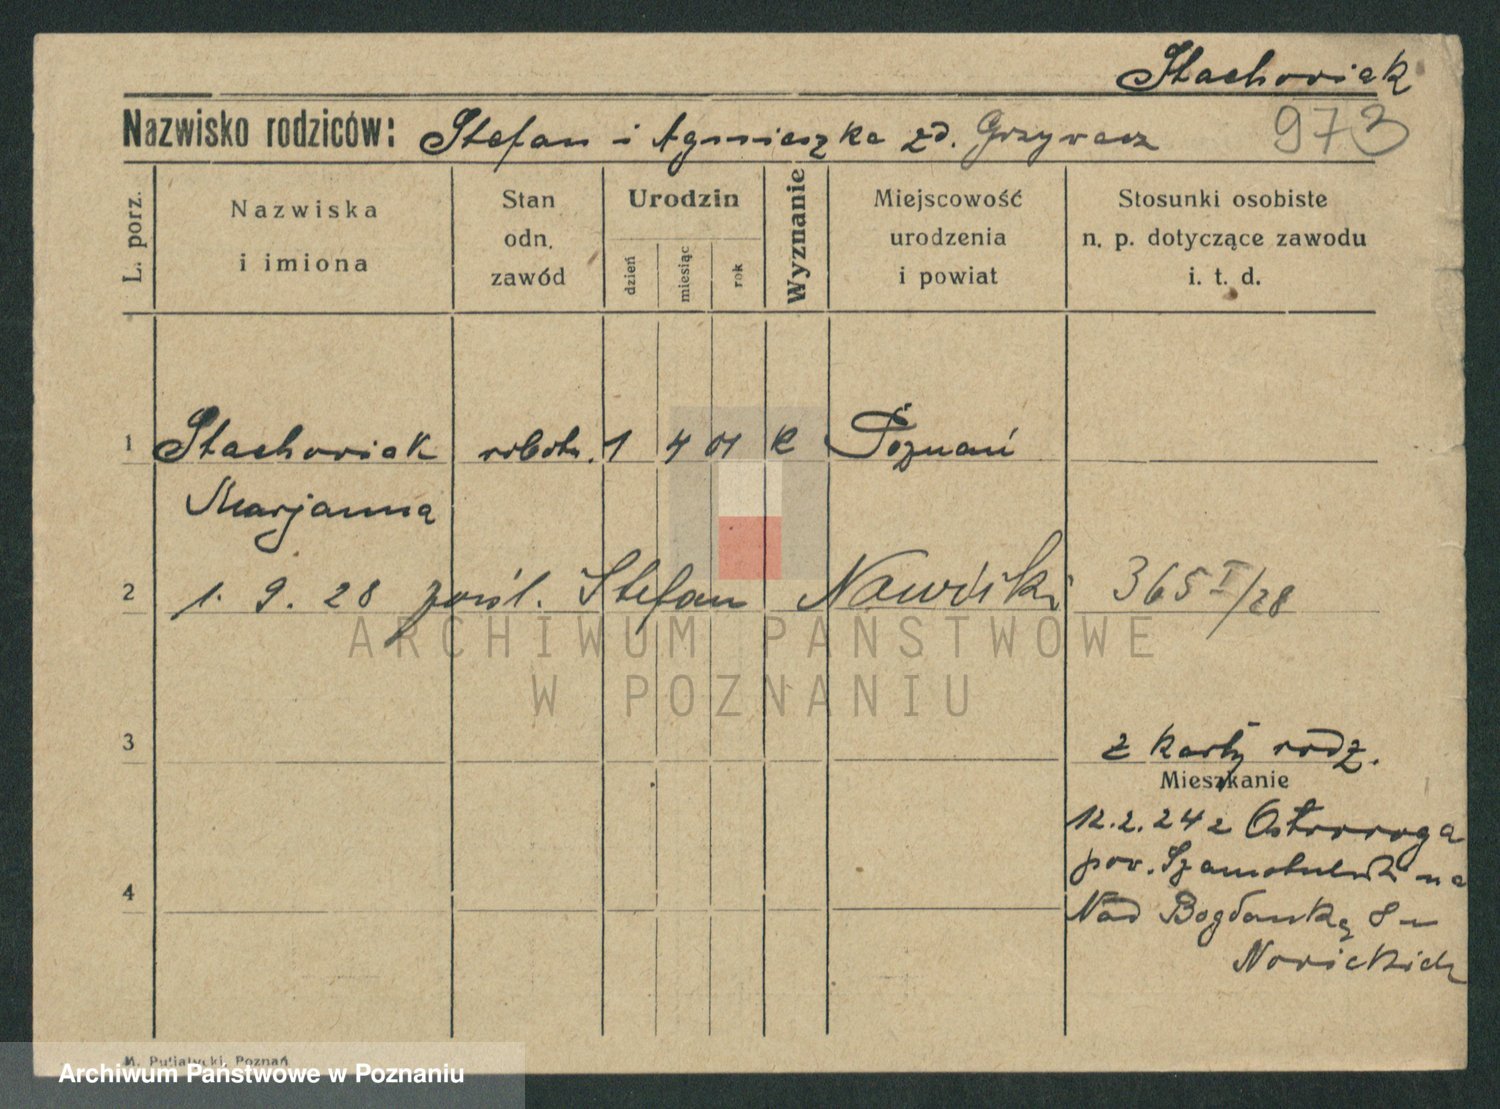 Stachowiak
Nazwisko rodziców: Stefan i Agnieszka zd. Grzywacz 973
L. porz.
Nazwiska
i imiona
Stan
odn.
zawód
Urodzin
dzień
miesiąc
rok
Wyznanie
Miejscowość
urodzenia
i powiat
Stosunki osobiste
n. p. dotyczące zawodu
i. t. d.
1 Stachowiak robotn. 1 4 01 k Poznań
Marjanna
2 1. 9. 28 pośl. Stefan Nawiński 365 I/28
3 z karty rodz.
Mieszkanie
12.2.24 z Ostroroga
pow. Szamotulski na
4
Nad Bogdanką 8 u
Nowickich
M. Putiatycki, Poznań
ARCHIWUM PAŃSTWOWE
W POZNANIU
Archiwum Państwowe w Poznaniu